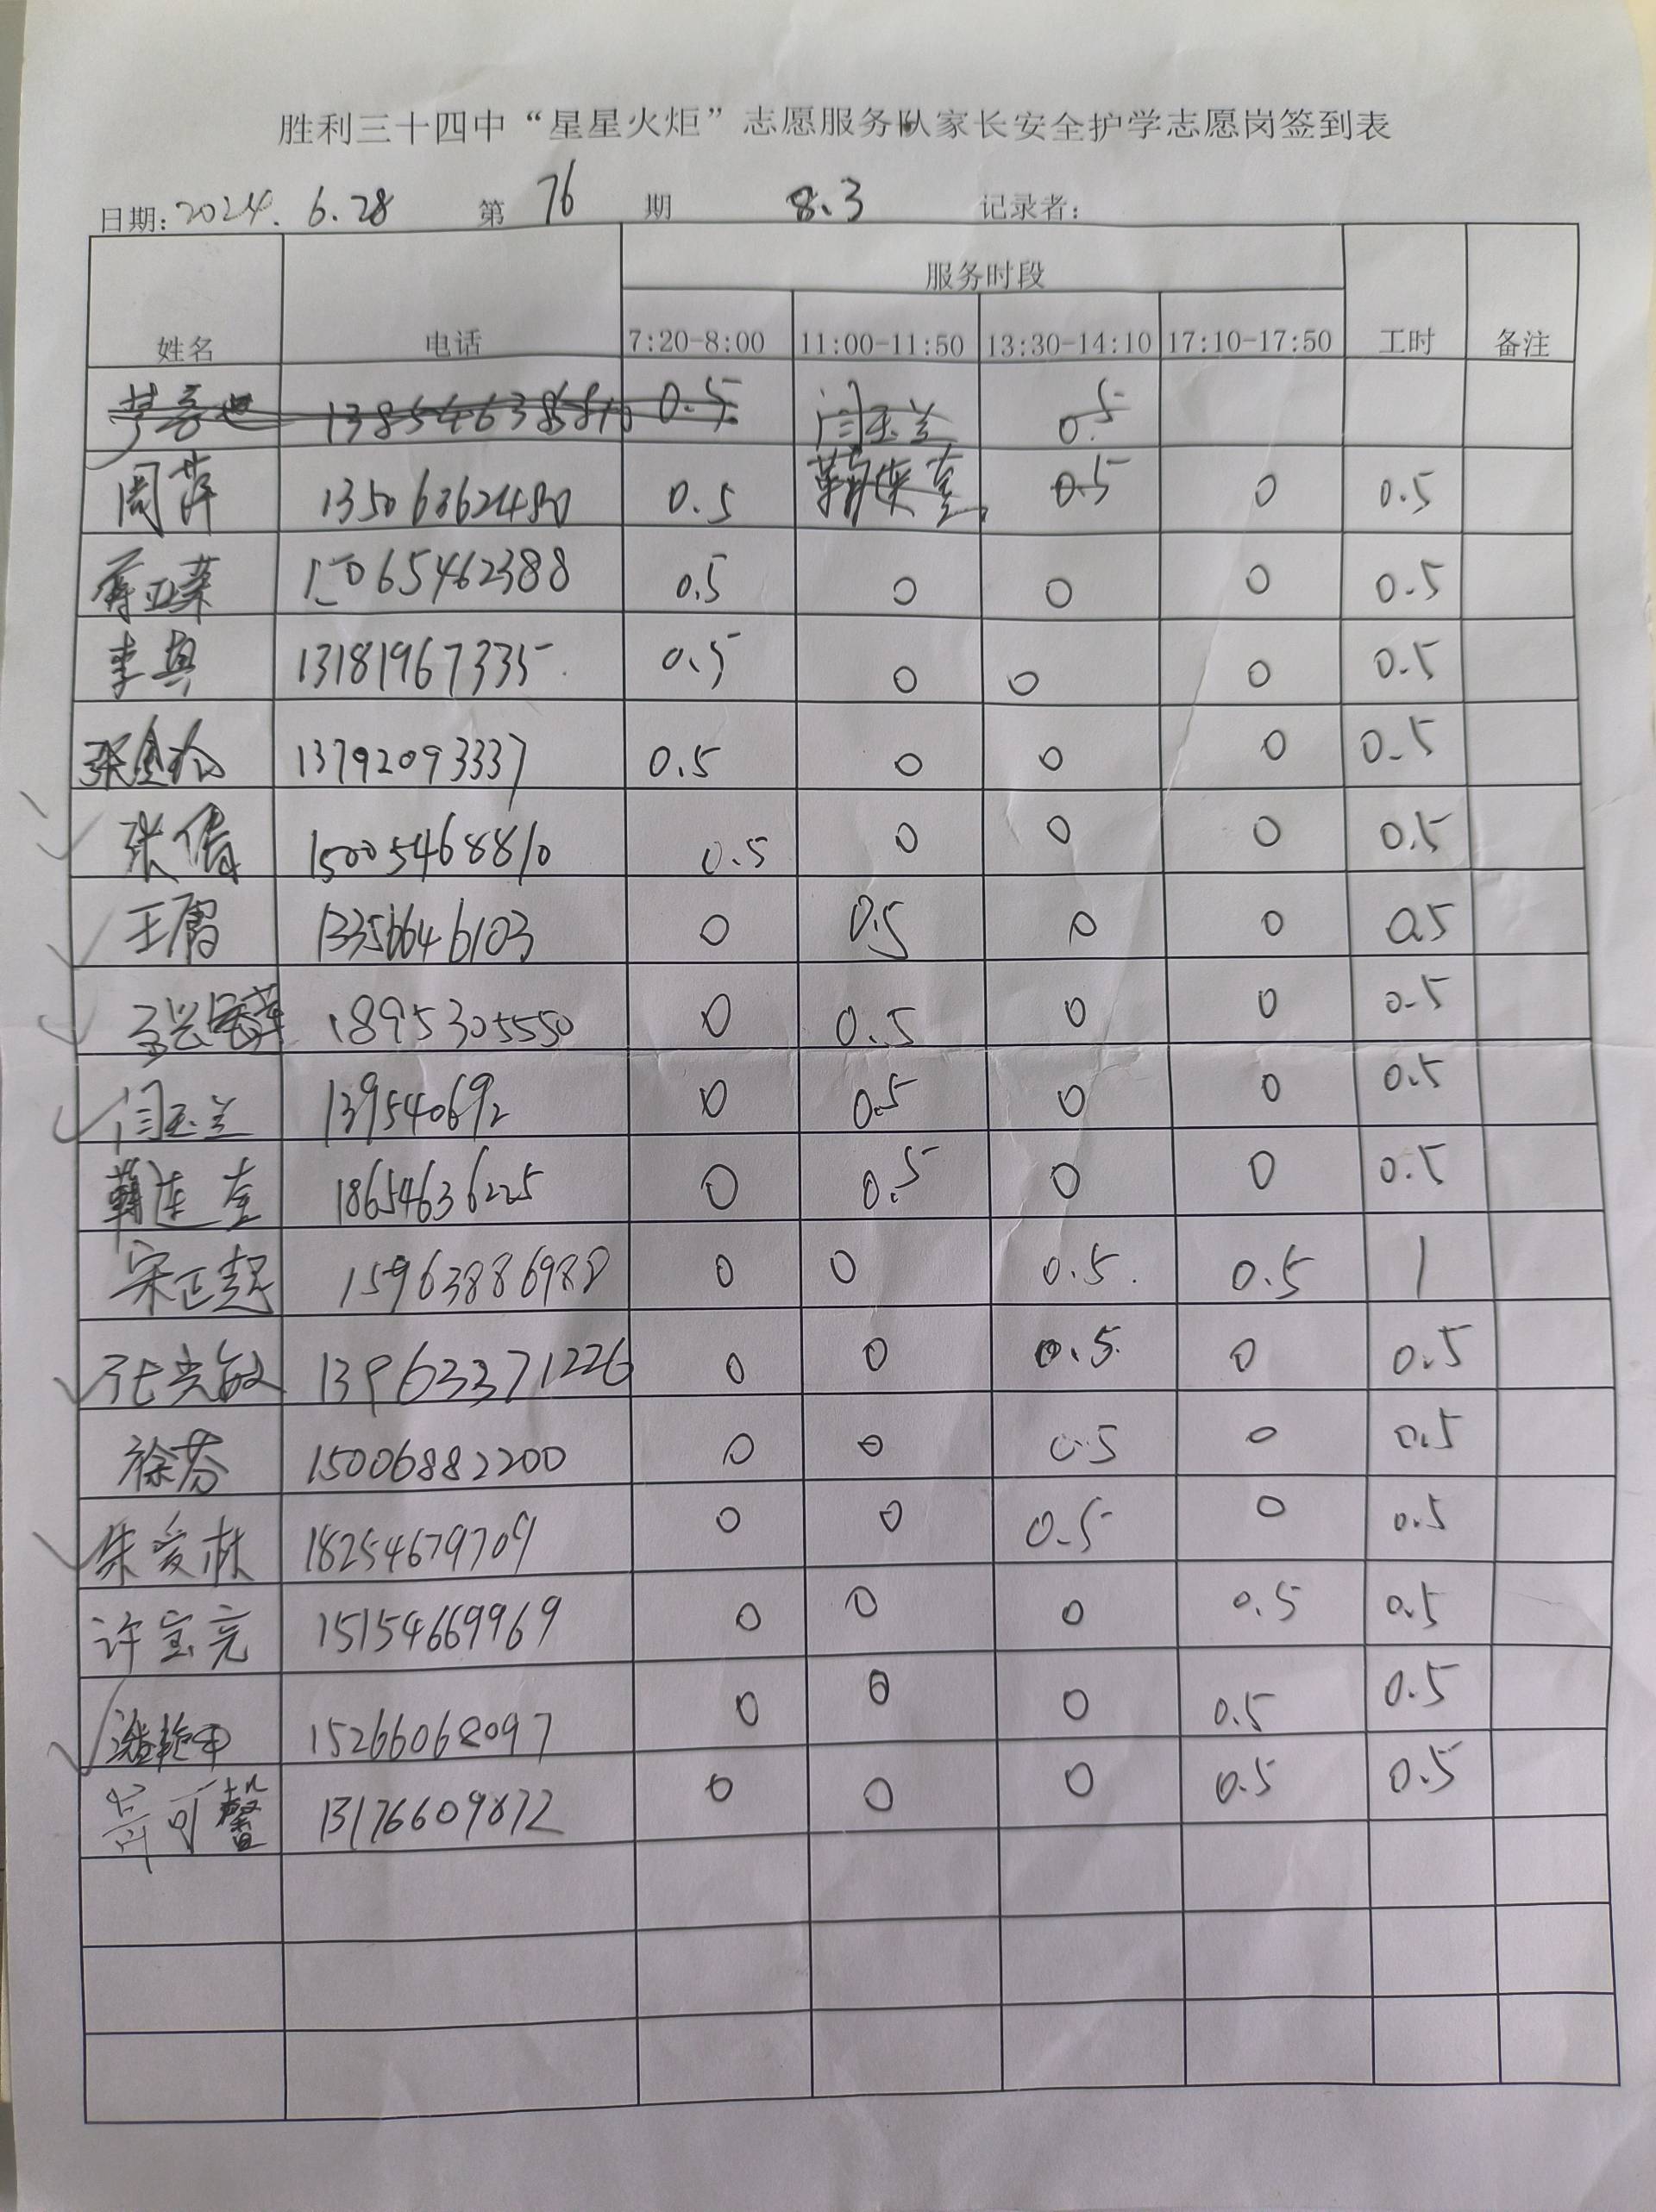 胜利三十四中“星星火炬”志愿服务队家长安全护学志愿岗签到表
日期: 2024. 6.28 第 76 期 8.3 记录者:
服务时段
姓名 电话 7:20-8:00 11:00-11:50 13:30-14:10 17:10-17:50 工时 备注
13854638681 0.5 闫玉兰 0.5
周萍 13506362480 0.5 0.5 0 0.5
15065462388 0.5 0 0 0 0.5
李典 13181967335 0.5 0 0 0 0.5
13792093337 0.5 0 0 0 0.5
张倩 15005468810 0.5 0 0 0 0.5
王腐 13356646103 0 0.5 0 0 0.5
1895305550 0 0.5 0 0 0.5
闫玉兰 139540692 0 0.5 0 0 0.5
18654636225 0 0.5 0 0 0.5
宋正起 15963886988 0 0 0.5 0.5 1
张光敏 13963371226 0 0 0.5 0 0.5
徐芬 15006882200 0 0 0.5 0 0.5
朱爱林 18254679709 0 0 0.5 0 0.5
许宝亮 15154669969 0 0 0 0.5 0.5
15266068097 0 0 0 0.5 0.5
可馨 13176609872 0 0 0 0.5 0.5